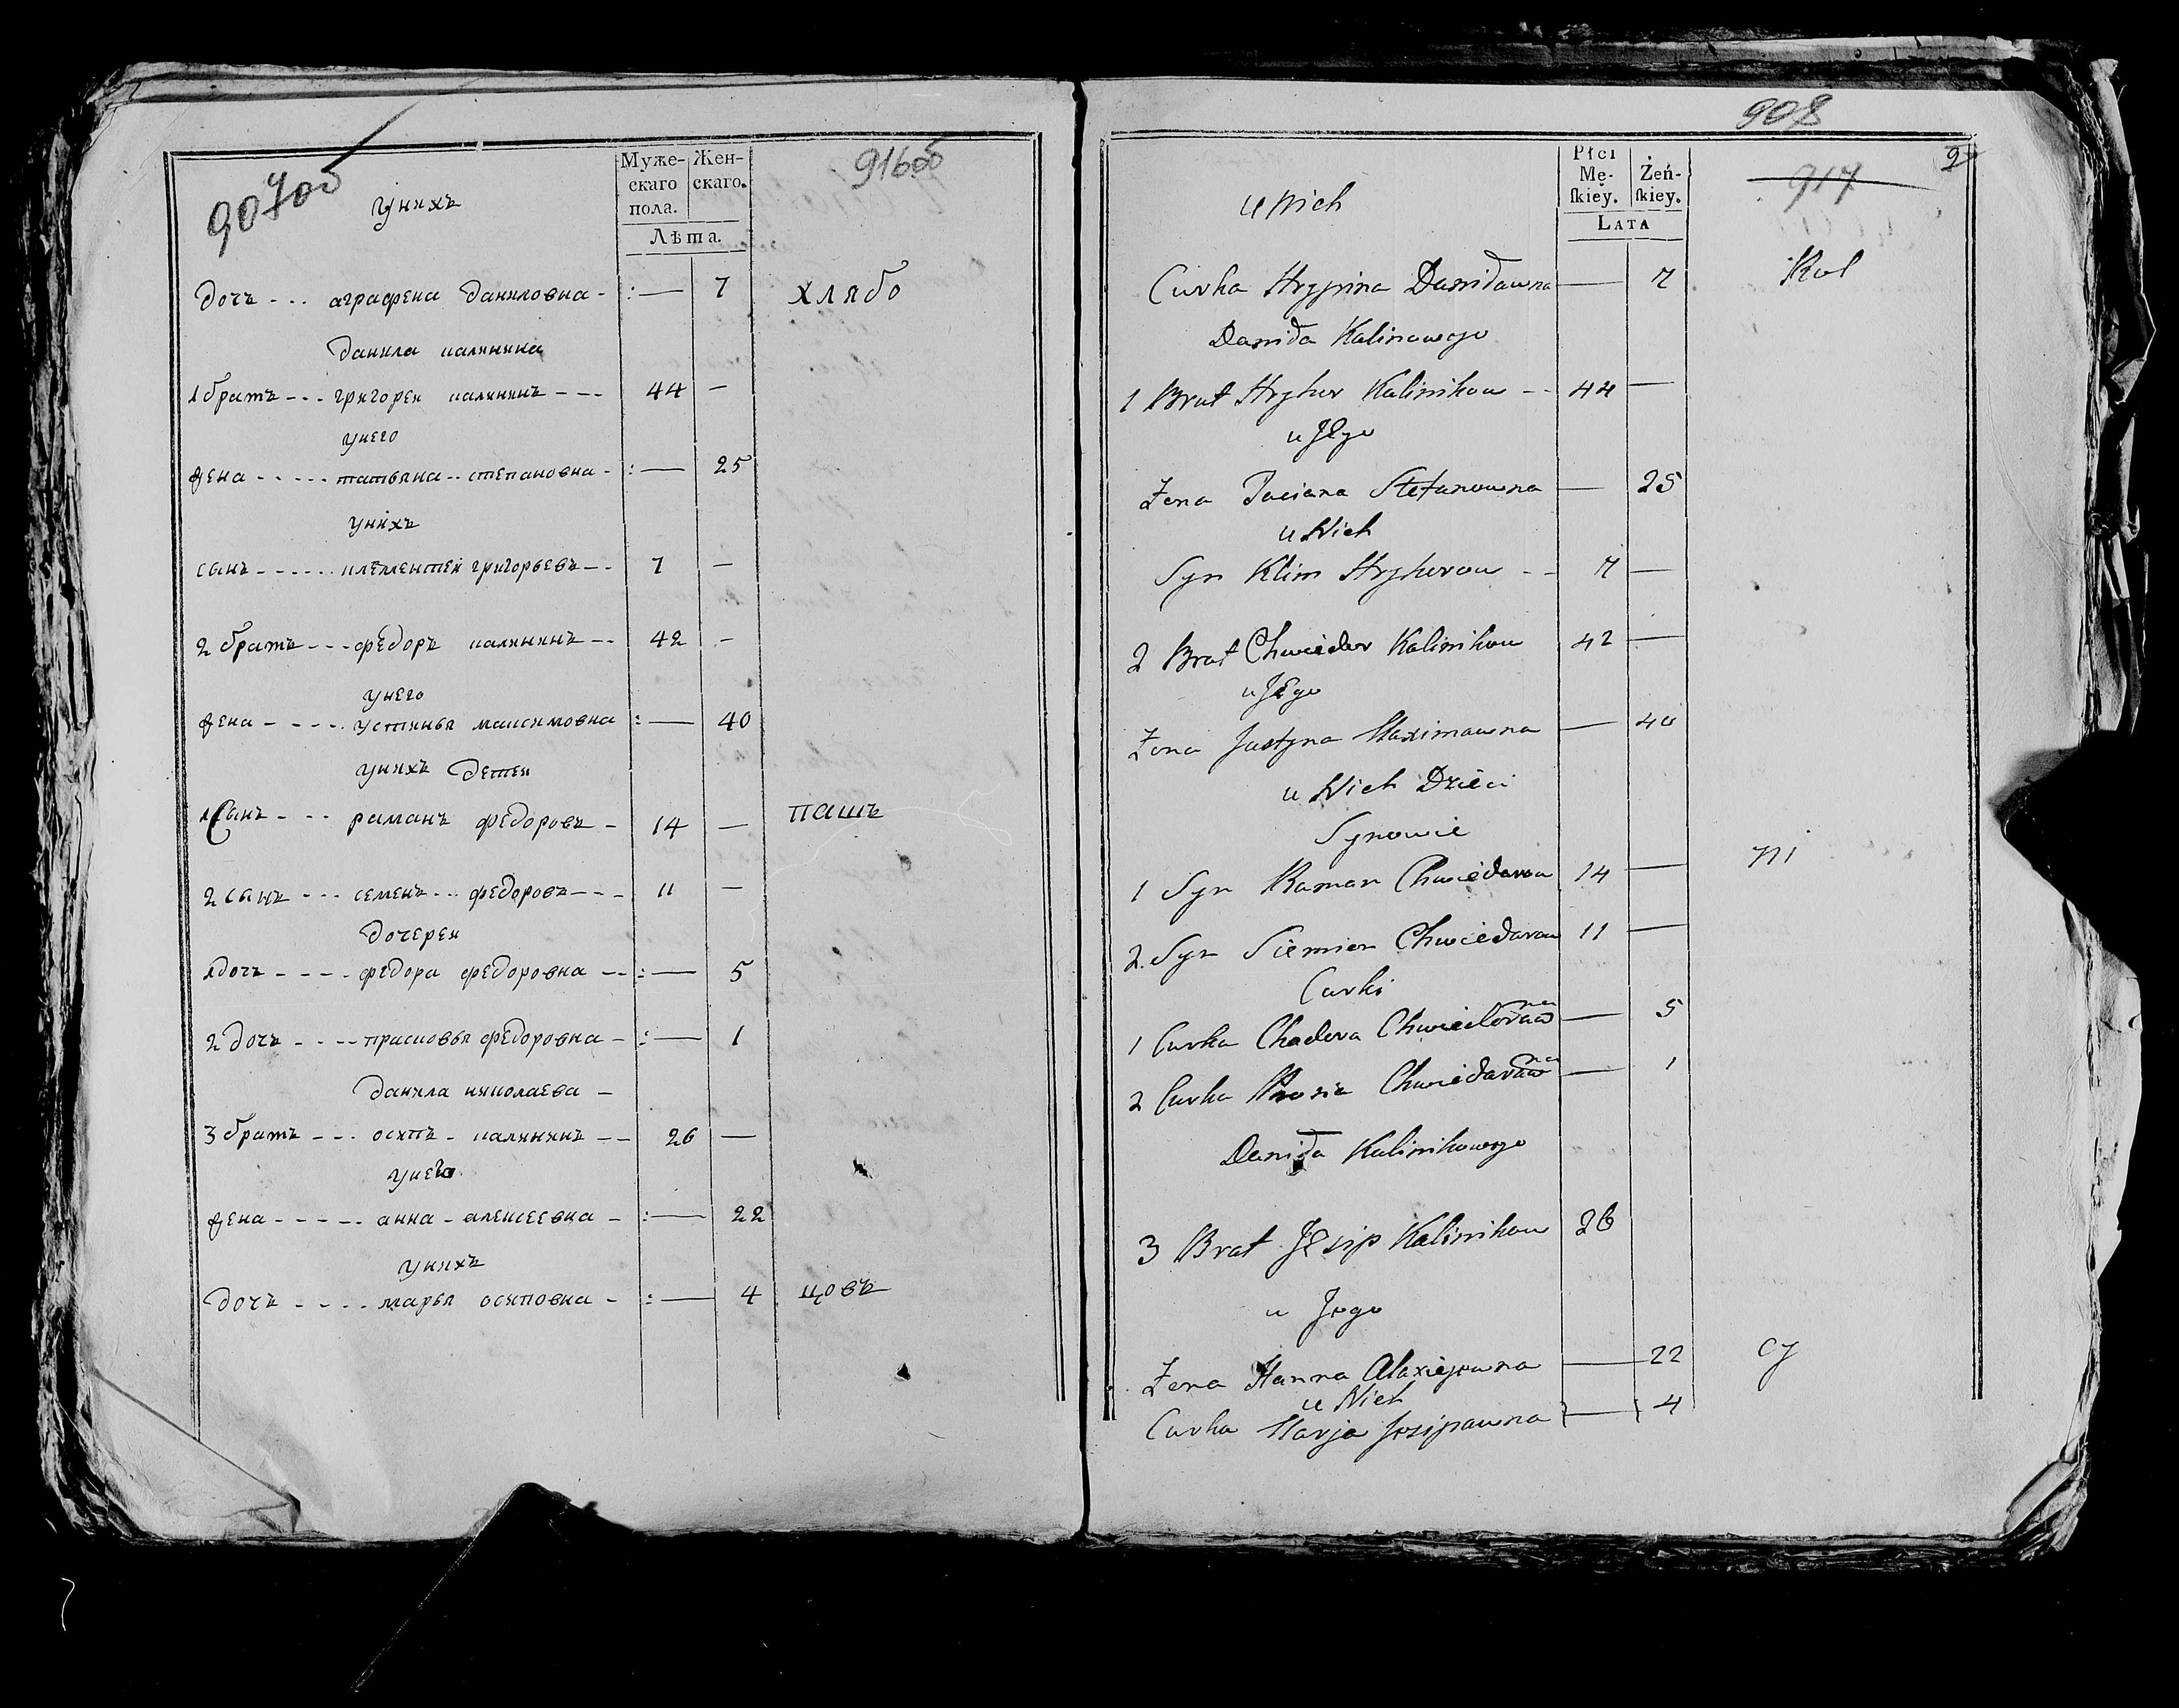 907об
унихъ
Муже-
скаго
пола.
Жен-
скаго.
Лѣта.
916об
дочъ - - - аграфена даниловна - :— 7 хлябо
данила калинина
1 братъ - - - григореи калининъ - - - 44 —
унего
жена - - - - - татьяна - - степановна - :— 25
унихъ
сынъ - - - - - - клементеи григорьевъ - - 7 —
2 братъ - - - федоръ калининъ - - 42 -
унего
жена - - - - - устинья максимовна :— 40
унихъ детеи
1 Сынъ - - - раманъ федоровъ - 14 — пашъ
2 сынъ - - - семенъ - - - федоровъ - - - 11 —
дочереи
1 дочъ - - - - - федора федоровна - - :— 5
2 дочъ - - - - прасковья федоровна - :— 1
данила николаева -
3 братъ - - - осипъ - калининъ - - 26 —
унего
жена - - - - - анна - алексеевна - :— 22
унихъ
дочъ - - - - - марья осиповна - :— 4 цовъ
908
u Nich
Płci
Mę-
ſkiey.
Żeń-
ſkiey.
Lata
917
2
Curka Hrypina Daniławna — 7 Kol
Daniła Kalinowego
1 Brat Hryhor Kalinikow - - 44 —
u Jego
Żona Taciana Stefanowna — 25
u Nich
Syn Klim Hryhorow - - 7 —
2 Brat Chwiedor Kalinikow 42 —
u Jego
Żona Justyna Maximawna — 40
u Nich Dzieci
Synowie
1 Syn Raman Chwiedarow 14 — ni
2. Syn Siemion Chwiedarow 11 —
Curki
1 Curka Chadora Chwiedorawna — 5
2 Curka Prosia Chwiedarawna — 1
Daniła Kalinikowego
3 Brat Josip Kalinikow 26
u Jego
Żona Hanna Alaxiejowna — 22 cy
u Nich
Curka Marja Josipawna — 4